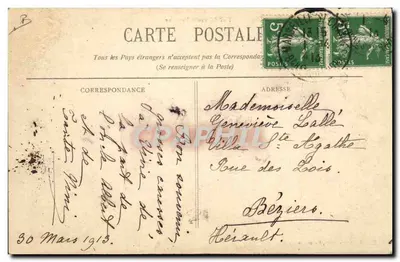 CARTE POSTALE
Tous les Pays étrangers n'acceptent pas la Correspondance
(Se renseigner à la Poste)
CORRESPONDANCE
ADRESSE
Bon souvenir
grosses caresses
la part de
A. de
Tante Mimi
30 Mars 1913.
Mademoiselle
Geneviève Lallé
Villa Ste Agathe
Rue des Lois
Béziers
Hérault.